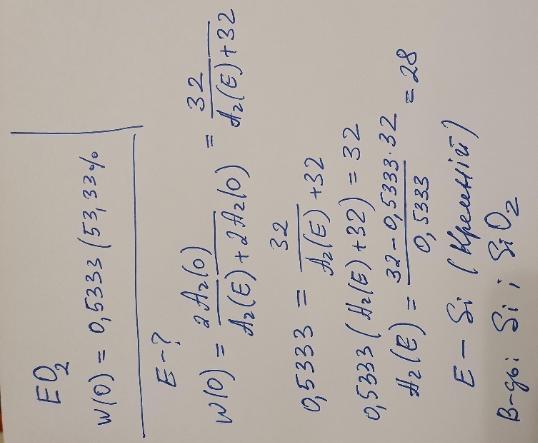 EO₂
W(O) = 0,5333 (53,33%
E-?
W(O) = 2Ar(O) / Ar(E) + 2Ar(O) = 32 / Ar(E) + 32
0,5333 = 32 / Ar(E) + 32
0,5333 (Ar(E) + 32) = 32
Ar(E) = 32 - 0,5333·32 / 0,5333 = 28
E - Si (Кремній)
В-дь: Si ; SiO₂